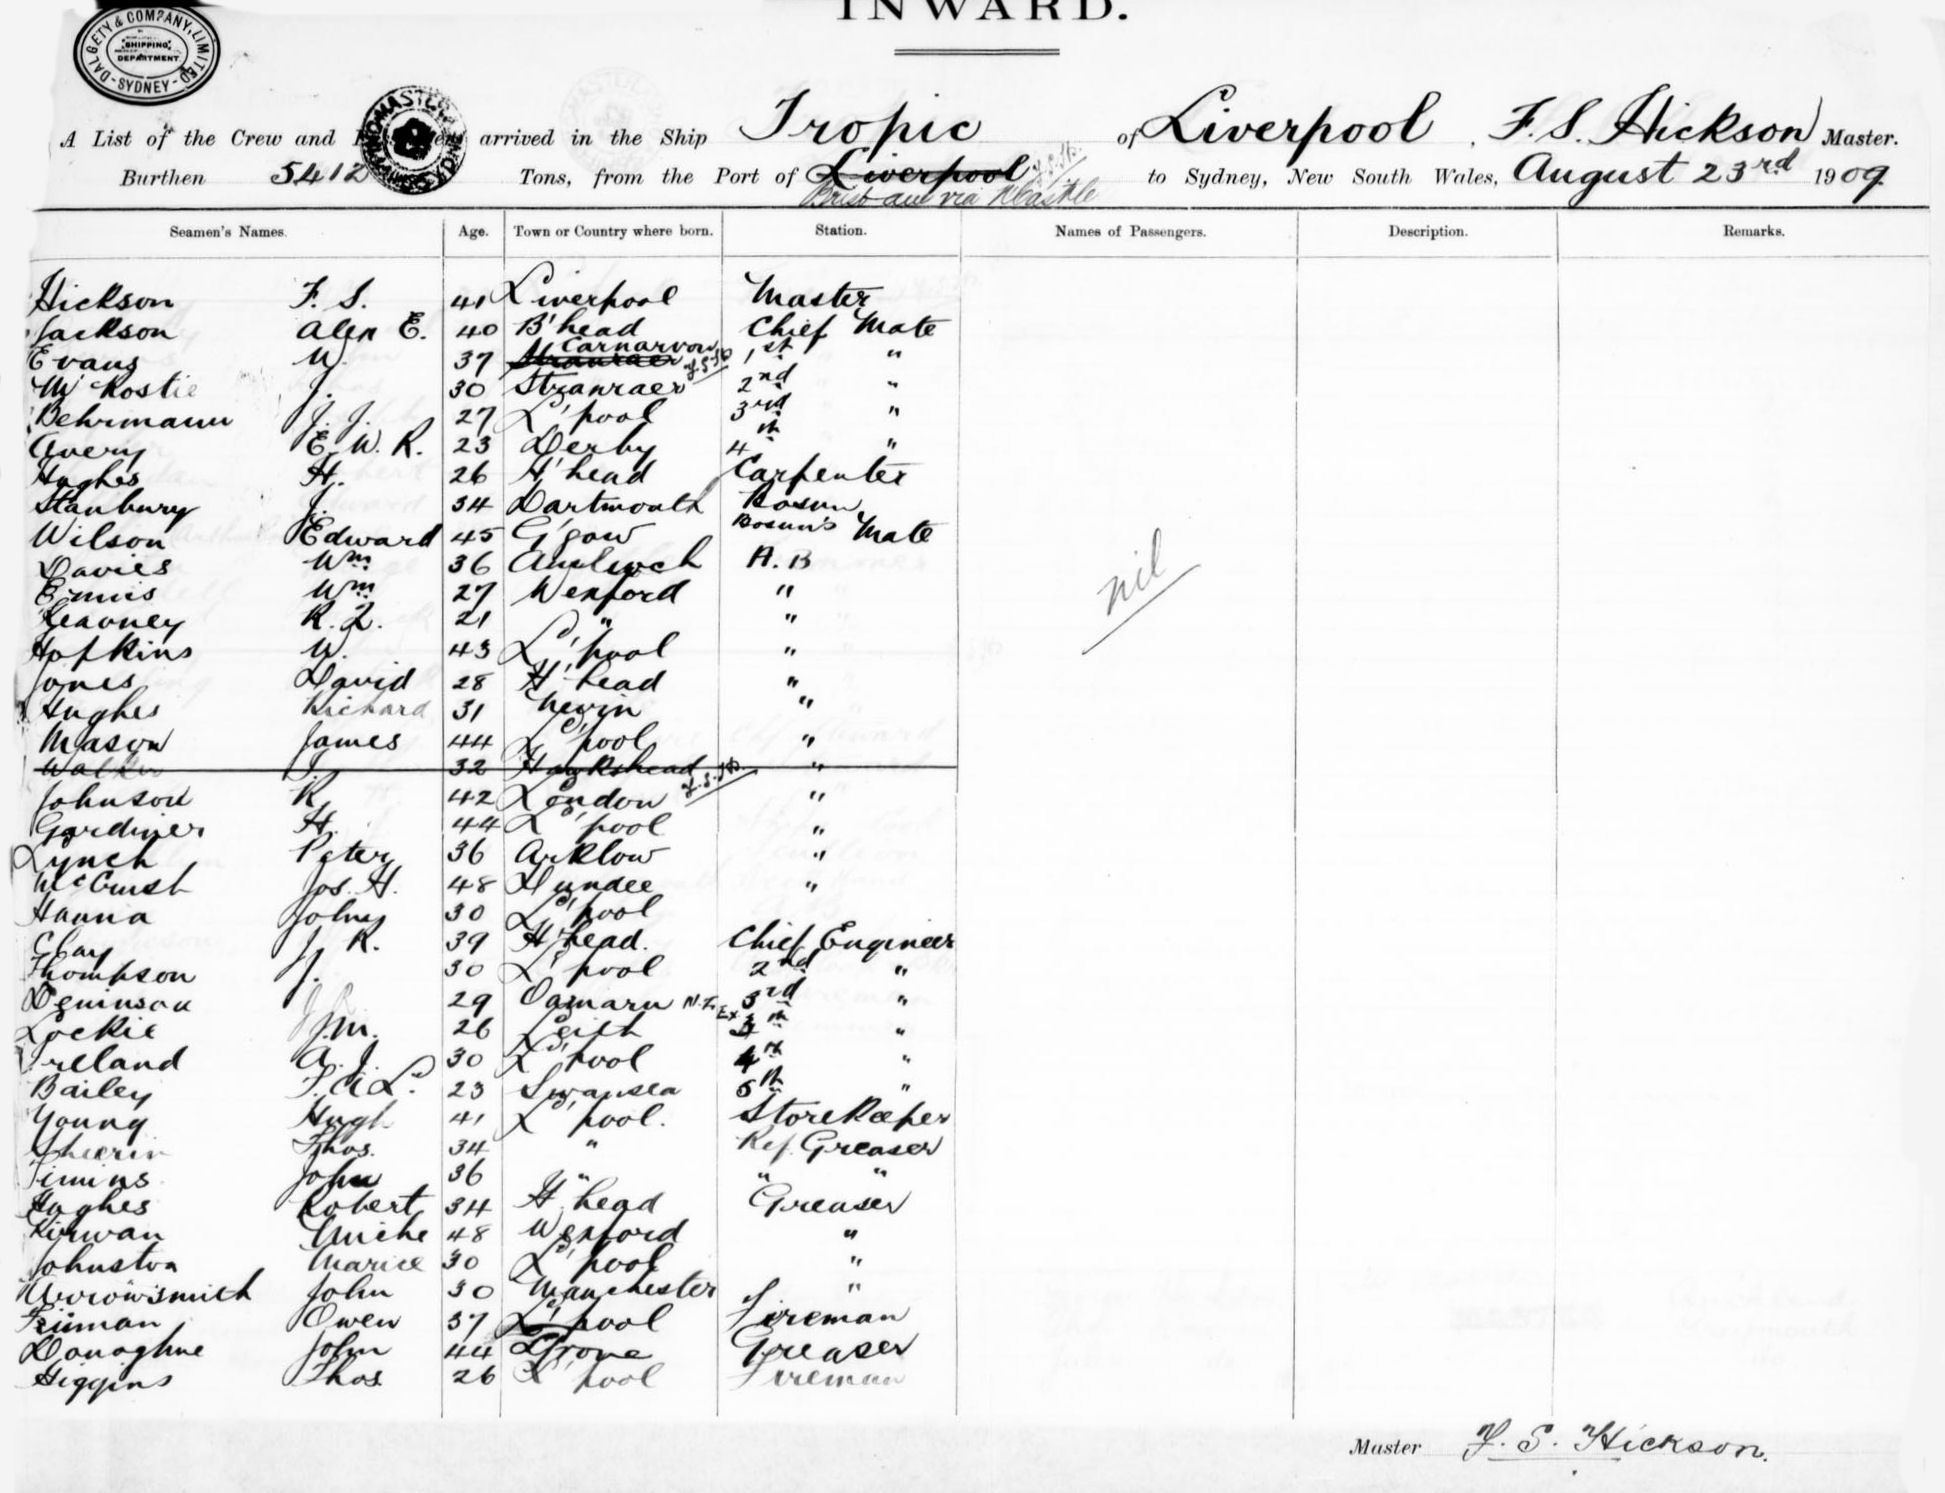 INWARD.
DALGETY & COMPANY, LIMITED
SHIPPING
DEPARTMENT.
SYDNEY
A List of the Crew and arrived in the Ship Tropic of Liverpool, F. S. Hickson Master.
Burthen 5412 Tons, from the Port of Liverpool F.S.H. to Sydney, New South Wales, August 23rd 1909
via N'Castle
Seamen's Names. Age. Town or Country where born. Station. Names of Passengers. Description. Remarks.
Hickson F. S. 41 Liverpool Master
Jackson Alex E. 40 B'head Chief Mate
Evans W. 37 Stranraer Carnarvon F.S.H. 1st "
McRostie J. 30 Stranraer 2nd "
Behrmann J. J. 27 L'pool 3rd "
Avery E. W. R. 23 Derby 4th "
Hughes H. 26 H'head Carpenter
Stanbury J. 34 Dartmouth Bosun
Wilson Edward 45 G'gow Bosun's Mate
Davies Wm 36 Amlwch A.B
Ennis Wm 27 Wexford "
Kearney R. 21 " "
Hopkins W. 43 L'pool "
Jones David 28 H'head "
Hughes Richard 31 Nevin "
Mason James 44 L'pool "
Walker J. 32 Hawkshead F.S.H. "
Johnson R. 42 London "
Gardiner H. 44 L'pool "
Lynch Peter 36 Arklow "
Jos. H. 48 Dundee "
Hanna John 30 L'pool
Clay J. R. 39 H'head. Chief Engineer
Thompson J. 30 L'pool 2nd "
Deninson 29 Oamaru N.Z. 3rd "
Lockie J.M. 26 Leith Ex 3th "
Ireland A. J. 30 L'pool 4th "
Bailey F. A L. 23 Swansea 5th "
Young Hugh 41 L'pool. Storekeeper
Sheerin Thos. 34 " Ref. Greaser
Timins John 36 " " "
Hughes Robert 34 H'head Greaser
Kirwan Miche 48 Wexford "
Johnston Marice 30 L'pool "
Arrowsmith John 30 Manchester "
Owen 37 L'pool Fireman
Donoghue John 44 Greaser
Higgins Thos 26 L'pool Fireman
nil
Master F. S. Hickson.